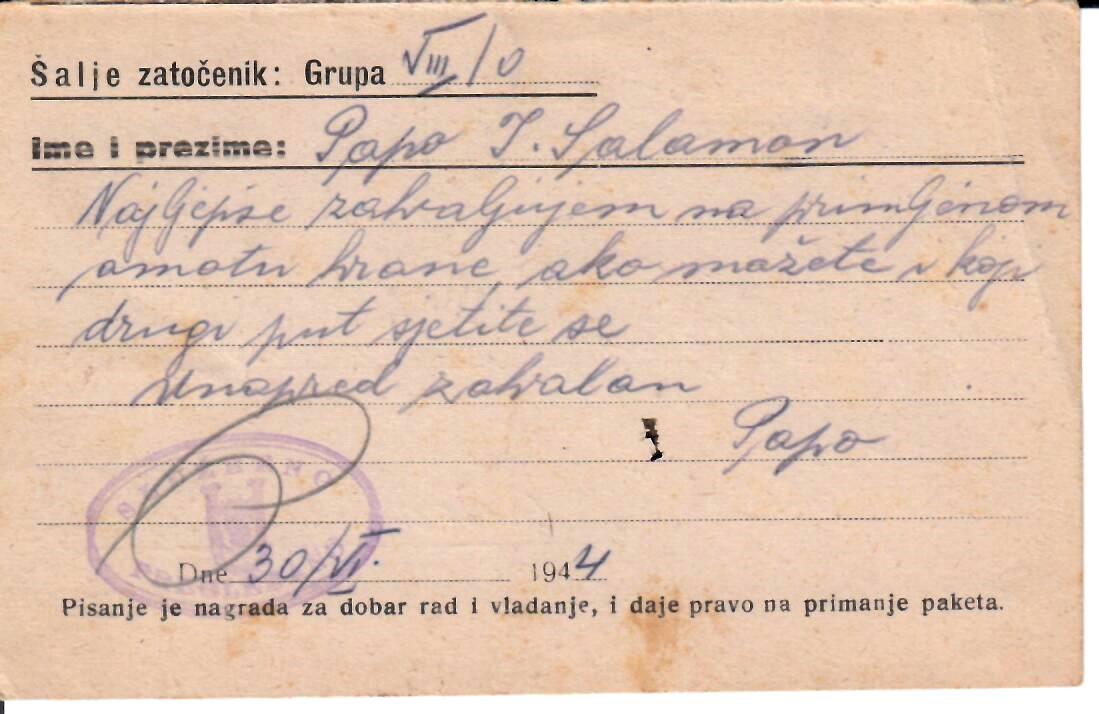 Šalje zatočenik: Grupa VIII/0
Ime i prezime: Papo J. Salamon
Najljepše zahvaljujem na primljenom
omotu hrane, ako možete i koji
drugi put sjetite se
Unapred zahvalan
Papo
Dne 30/VI. 1944
Pisanje je nagrada za dobar rad i vladanje, i daje pravo na primanje paketa.